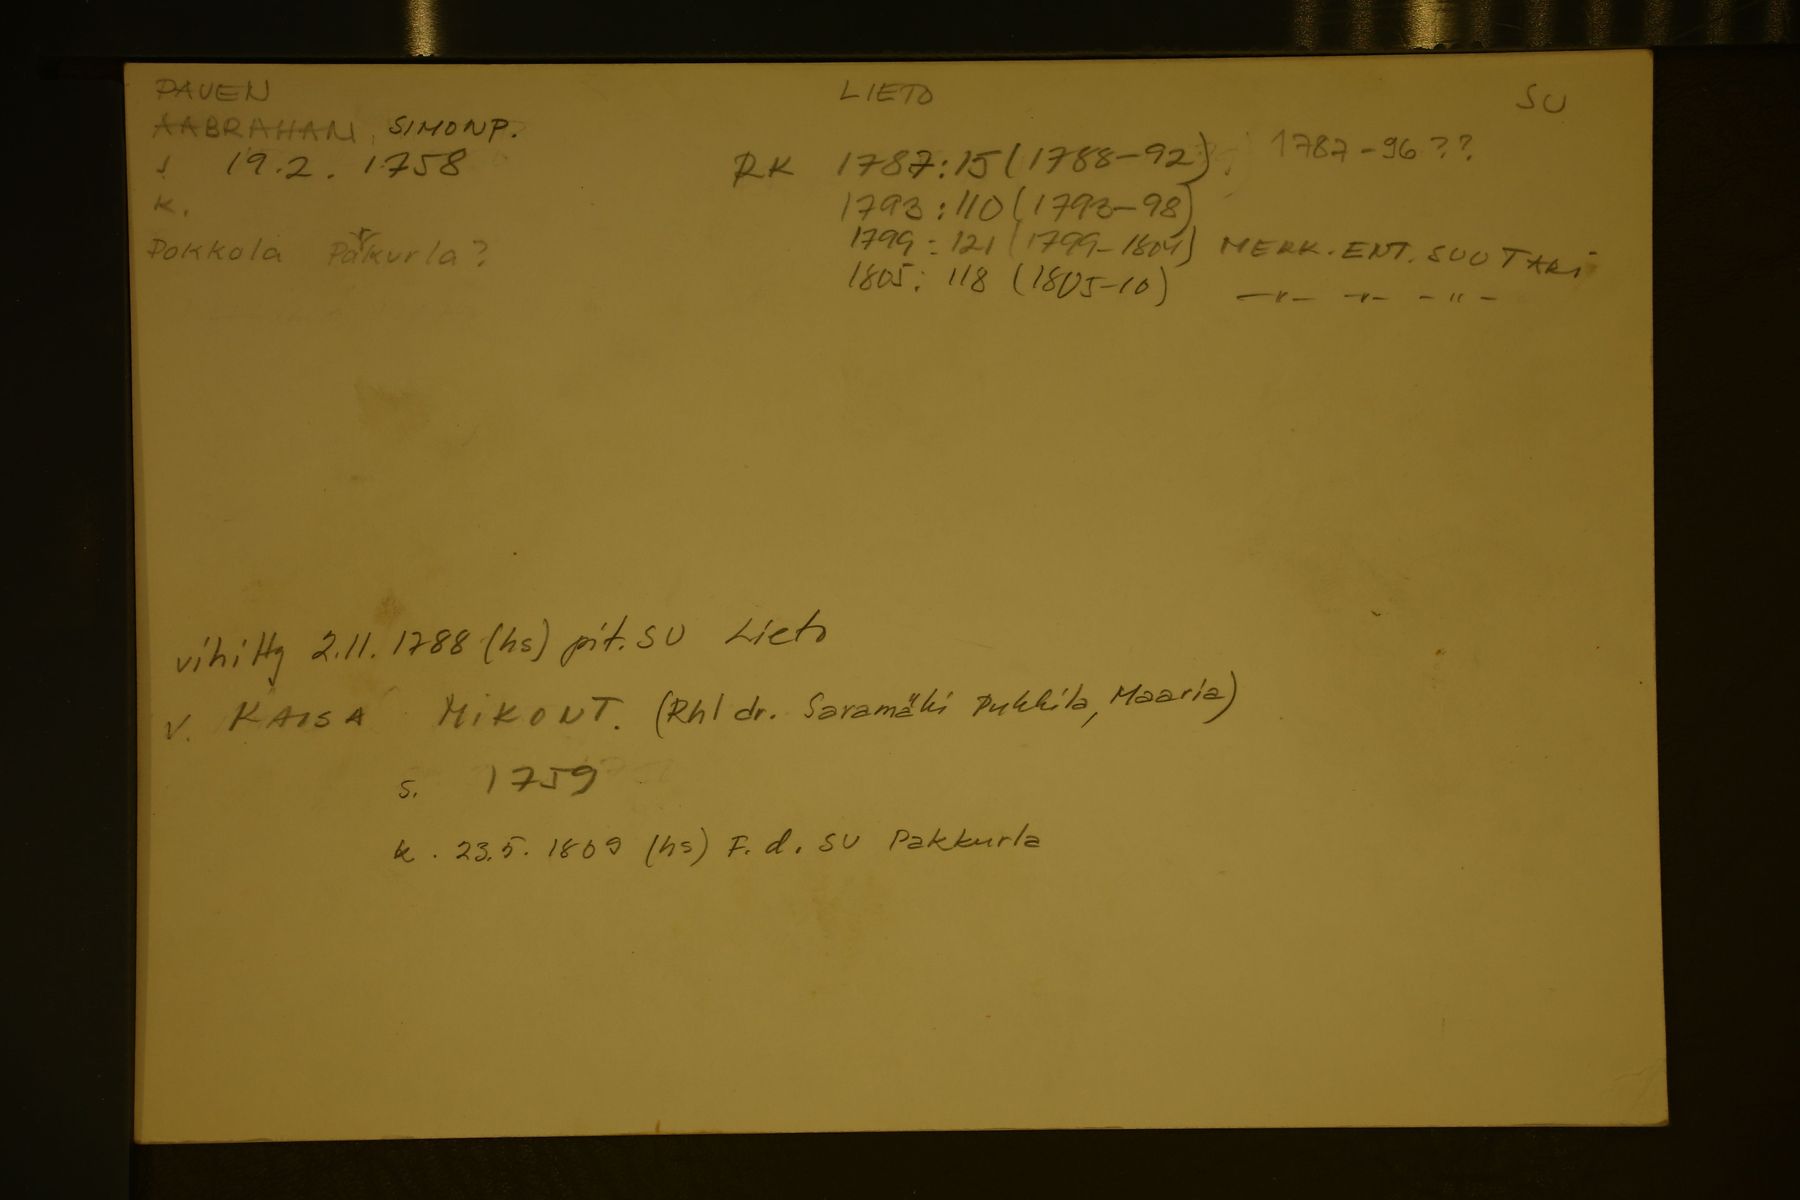 PAVEN LIETO SU
AABRAHAM, SIMONP.
s 19.2. 1758 RK 1787:15 (1788-92) 1787-96??
k. 1793:110 (1793-98)
Pokkola Pakurla? 1799:121 (1799-1804) MERK. ENT. SUUTARI
1805:118 (1805-10) -"- -"- -"-
vihitty 2.11.1788 (hs) pit. SU Lieto
v. KAISA MIKONT. (Rhl dr. Saramäki Pukkila, Maaria)
s. 1759
k. 23.5.1809 (hs) F.d. SU Pakkurla